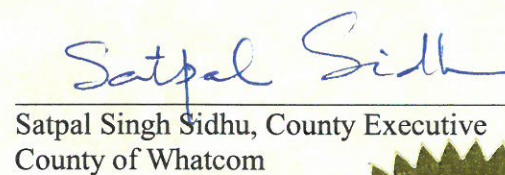 Satpal Sidh
Satpal Singh Sidhu, County Executive
County of Whatcom